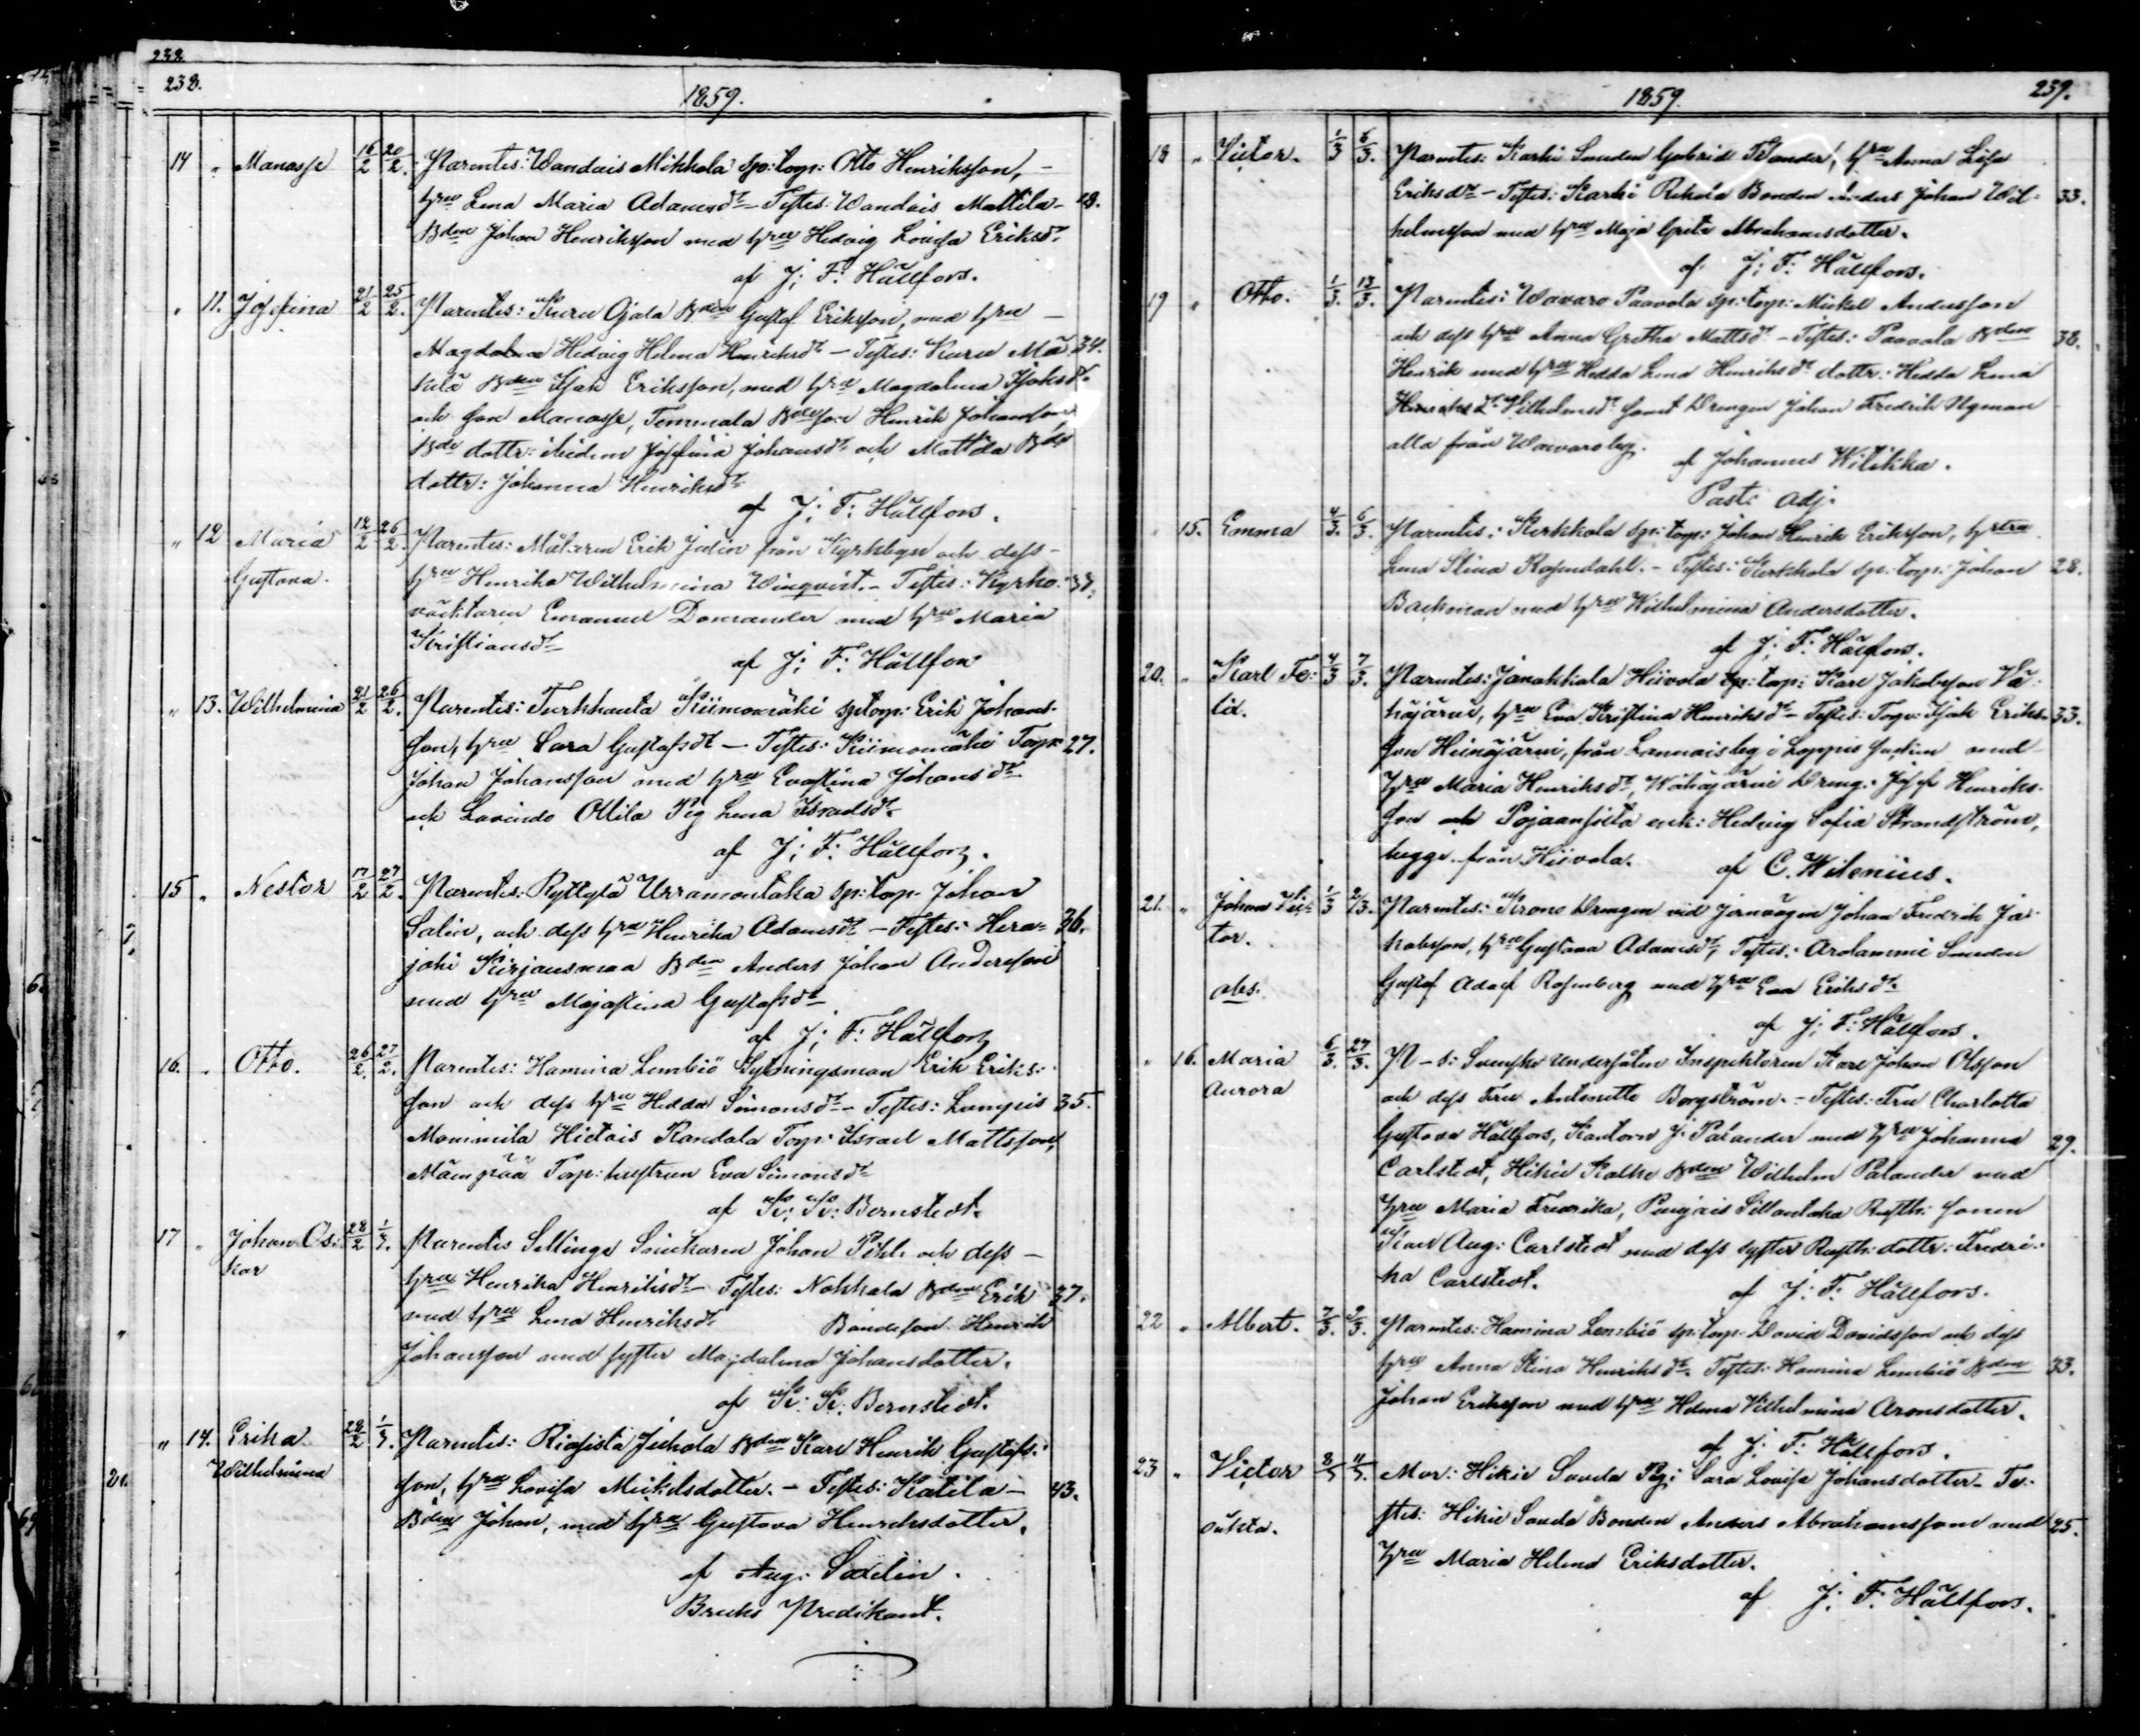 238.
238.
1859.
14 " Manasse 16/2 20/2. Parentes: Wandais Mikkola sp: torp: Otto Henriksson, –
hru Lena Maria Adamsdt – Testes: Wandais Mattila – 18.
Bden Johan Henriksson med hru Hedvig Lovisa Eriksdt
af J: F: Hällfors.
" 11. Josefina 21/2 25/2. Parentes: Kuru Ojala Bden Gustaf Eriksson, med hru –
Magdalena Hedvig Helena Henriksdt – Testes: Karu Mä 34.
kelä Bden Isak Eriksson, med hru Magdalena Isaksdt
och son Manasse, Temmala Bdeson Henrik Johansson
Bde dottr: Josefina Johansdt och Mattila Bde
dottr: Johanna Henriksdt
af J: F: Hällfors.
" 12 Maria 12/2 26/2. Parentes: Målaren Erik Julin från Kyrkbyn och dess –
Gustava. hru Henrika Wilhelmina Winqvist. – Testes: Kyrko- 37.
väktaren Emanuel Domander med hru Maria
Kristiansdt
af J: F: Hällfors
" 13. Wilhelmina 21/2 26/2. Parentes: Turkhauta Kiimomäki sptorp: Erik Johans-
son, hru Sara Gustafsdt – Testes: Kiimomäki Torp: 27.
Johan Johansson med hru Evastina Johansdt
och Lavinto Ollila Pig Lena Israelsdt
af J: F: Hällfors.
15 " Nestor 17/2 27/2. Parentes: Ryttylä Urramontaka sp: torp. Johan
Salin, och dess hru Henrika Adamsdt – Testes: Hera- 36.
joki Kirjausmaa Bden Anders Johan Andersson
med hru Majastina Gustafsdt
af J: F: Hällfors
16. " Otto. 26/2. 27/2. Parentes: Hamina Lembiö Sytningsman Erik Eriks-
son och dess hru Hedda Simonsdt – Testes: Lampis 35.
Mommila Hietois Randala Torp: Israel Mattsson,
Mäenpää Torp: hustrun Eva Simonsdt
af K: K: Bernstedt.
17 " Johan Os- 28/2 1/3. Parentes Sellinge Snickaren Johan Pihl och dess –
kar hru Henrika Henriksdt – Testes: Nokkala Bden Erik 37.
med hru Lena Henriksdt Bondeson Henrik
Johansson med syster Magdalena Johansdotter.
af K: K: Bernstedt.
" 14. Erika 28/2 1/3. Parentes: Riasista Juhola Bden Karl Henrik Gustafs-
Wilhelmina son, hru Lovisa Mickelsdotter. – Testes: Katila – 43.
Bden Johan, med hru Gustava Henriksdotter.
af Aug: Sadelin.
Bruks Predikant.
1859. 239.
18 " Victor. 1/3 6/3. Parentes: Karhi Smeden Gabriel Tolander, hru Anna Lisa
Eriksdt – Testes: Karhi Rekola Bonden Anders Johan Wil- 33.
helmsson med hru Maja Greta Abrahamsdotter.
af J: F: Hällfors.
19 " Otto. 1/3. 13/3. Parentes: Wawaro Paavola sp: torp: Mickel Andersson
och dess hru Anna Gretha Mattsdt – Testes: Paavola Bden 38.
Henrik med hru Hedda Lena Henriksdt dottr: Hedda Lena
Wilhelmsdt samt Drengen Johan Fredrik Ugman
alla från Wawaro by.
af Johannes Wilikka.
Past: adj.
" 15. Emma 4/3. 6/3. Parentes: Kerkkola sp: torp: Johan Henrik Eriksson, hstru
Lena Stina Rosendahl. – Testes: Kerkkola sp: torp: Johan 28.
Backman med hru Wilhelmina Andersdotter.
af J: F: Hällfors.
20. " Karl Fe- 4/3 7/3. Parentes: Janakkala Hiivola sp: torp: Karl Jakobsson Wä-
lix. häjärvi, hru Eva Kristina Henriksdt – Testes: Torp: Isak Eriks- 33.
son Heinäjärvi, från Lannais by i Loppis socken med
hru Maria Henriksdt, Wähäjärvi Dreng: Josef Henriks-
son och Pojaansuota enk: Hedvig Sofia Strandström,
begge från Hiivola. af C. Wilenius.
21. " Johan Vic- 1/3 2/3. Parentes: Krono Drengen vid Jernvägen Johan Fredrik Ja-
tor. kobsson, hru Gustava Adamsdt, Testes: Arolammi Smeden
obs. Gustaf Adolf Rosenberg med hru Eva Eriksdt
af J: F: Hällfors.
" 16. Maria 6/3. 27/3. P – s: Svenske undersåten Inspektoren Karl Johan Olsson
Aurora och dess Fru Antonette Borgström. – Testes: Fru Charlotta
Gustava Hällfors, Kantorn J: Palander med hru Johanna 29.
Carlstedt, Hikiä Kalke Bden Wilhelm Palander med
hru Maria Fredrika, Sillantaka Rusth: sonen
Karl Aug: Carlstedt med dess syster Rusth: dottr: Fredri-
ka Carlstedt. af J: F: Hällfors.
22 " Albert. 7/3. 9/3. Parentes: Hamina Lembiö sp: torp: David Davidsson och dess
hru Anna Stina Henriksdt. Testes: Hamina Lembiö Bden 33.
Johan Eriksson med hru Helena Wilhelmina Aronsdotter.
af J: F: Hällfors.
23 " Victor 8/3 11/3. Mor: Hikiä Savela Pig: Sara Lovisa Johansdotter – Te-
oäkta. stes: Hikiä Savela Bonden Anders Abrahamsson med 25.
hru Maria Helena Eriksdotter.
af J: F: Hällfors.